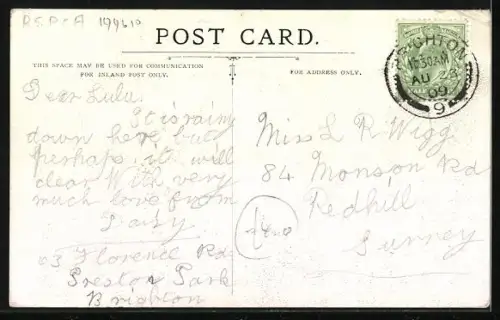 R.S.P.C.A
POST CARD.
THIS SPACE MAY BE USED FOR COMMUNICATION
FOR INLAND POST ONLY.
FOR ADDRESS ONLY.
BRIGHTON
AU
09
9
Dear Lulu.
It is raing
down here but
perhaps it will
clear With very
much love from
63 Florence Rd
Preston Park
Brighton
Miss L R Wigg
84 Monson Rd
Redhill
Surrey